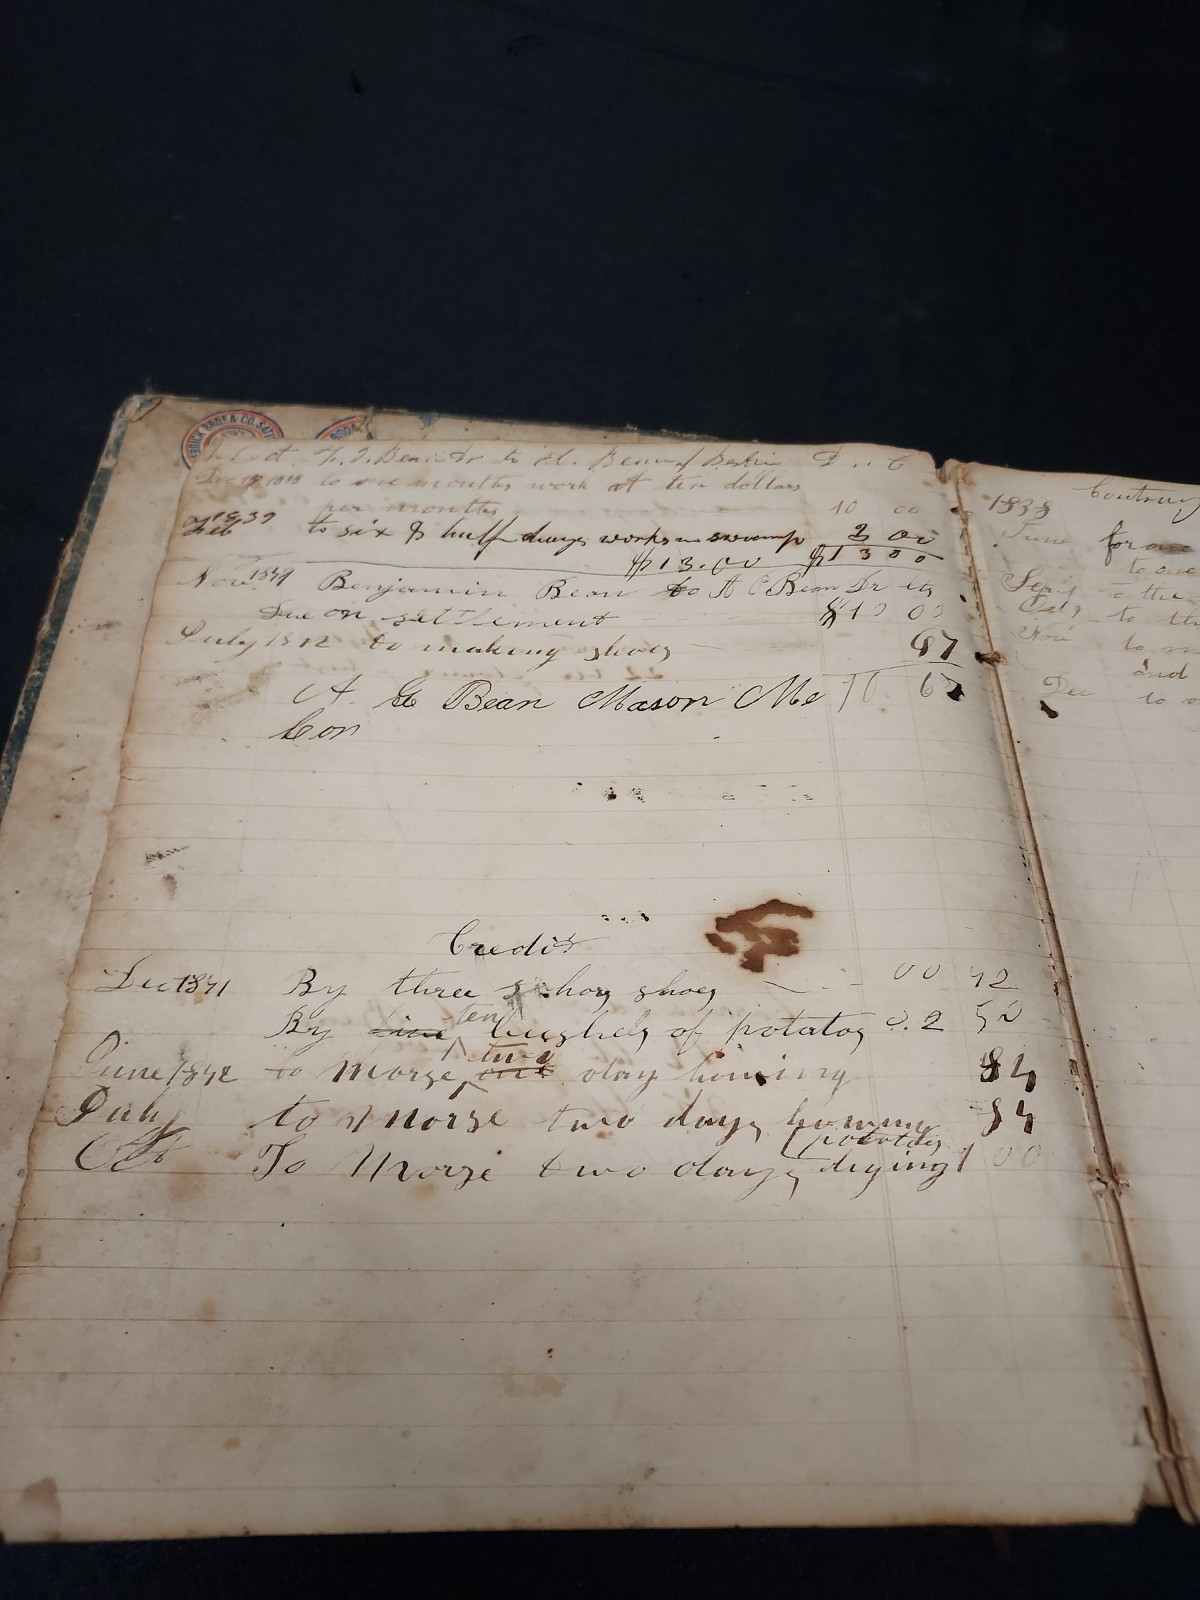 BROS & CO.
to one months work at ten dollars
per months 10 00
1839
Feb to six & half days work in swamp 3 00
$13.00 $13 00
Nov Benjamin Bean to A C Bean Dr
Due on settlement $10 00
July 1842 to making shoes 67
A C Bean Mason Me 10 67
Con
Credit
Dec 1841 By three shoes 00 42
By ten bushels of potatos 0.2 50
June 1842 to Morse two day 84
July to Morse two days 84
potatos
Oct To Morse two days diging 1 00
1838
June for one
to one
Sept to the
Oct to th
Nov
and
Dec to